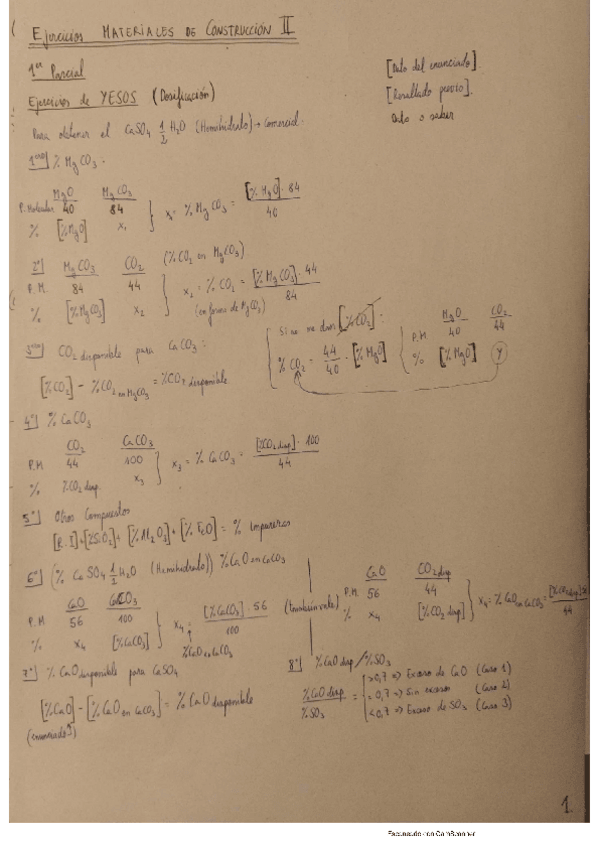 Ejercicios MATERIALES DE CONSTRUCCIÓN II
1er Parcial
[Dato del enunciado]
[Resultado previo].
Dato a saber
Ejercicios de YESOS (Dosificación)
Para obtener el CaSO4 1/2 H2O (Hemihidrato) → comercial.
1ero] % MgCO3:
MgO MgCO3
P. Molecular 40 84
% [%MgO] x1
x1 = % MgCO3 = [%MgO] · 84 / 40
2º] MgCO3 CO2 (%CO2 en MgCO3)
P.M. 84 44
% [%MgCO3] x2
x2 = % CO2 = [%MgCO3] · 44 / 84
(en forma de MgCO3)
3ero] CO2 disponible para CaCO3:
[%CO2] - %CO2 en MgCO3 = %CO2 disponible
Si no me dan [%CO2]:
% CO2 = 44/40 · [%MgO]
MgO CO2
P.M 40 44
% [%MgO] Y
4º] % CaCO3
CO2 CaCO3
P.M 44 100
% %CO2 disp. x3
x3 = % CaCO3 = [%CO2 disp] · 100 / 44
5º] Otros Compuestos
[R.I]+[%SiO2]+[%Al2O3]+[%FeO] = % impurezas
6º] (% CaSO4 1/2 H2O (Hemihidrato)) %CaO en CaCO3
CaO CaCO3
P.M 56 100
% x4 [%CaCO3]
x4 = [%CaCO3] · 56 / 100
%CaO en CaCO3
(también vale)
CaO CO2 disp
P.M. 56 44
% x4 [%CO2 disp]
x4 = % CaO en CaCO3 = [%CO2 disp] 56 / 44
7º] % CaO disponible para CaSO4
[%CaO] - [%CaO en CaCO3] = % CaO disponible
(enunciado)
8º] %CaO disp / %SO3
%CaO disp / %SO3 =
>0,7 => Exceso de CaO (Caso 1)
= 0,7 => Sin exceso (Caso 2)
<0,7 => Exceso de SO3 (Caso 3)
1.
Escaneado con CamScanner